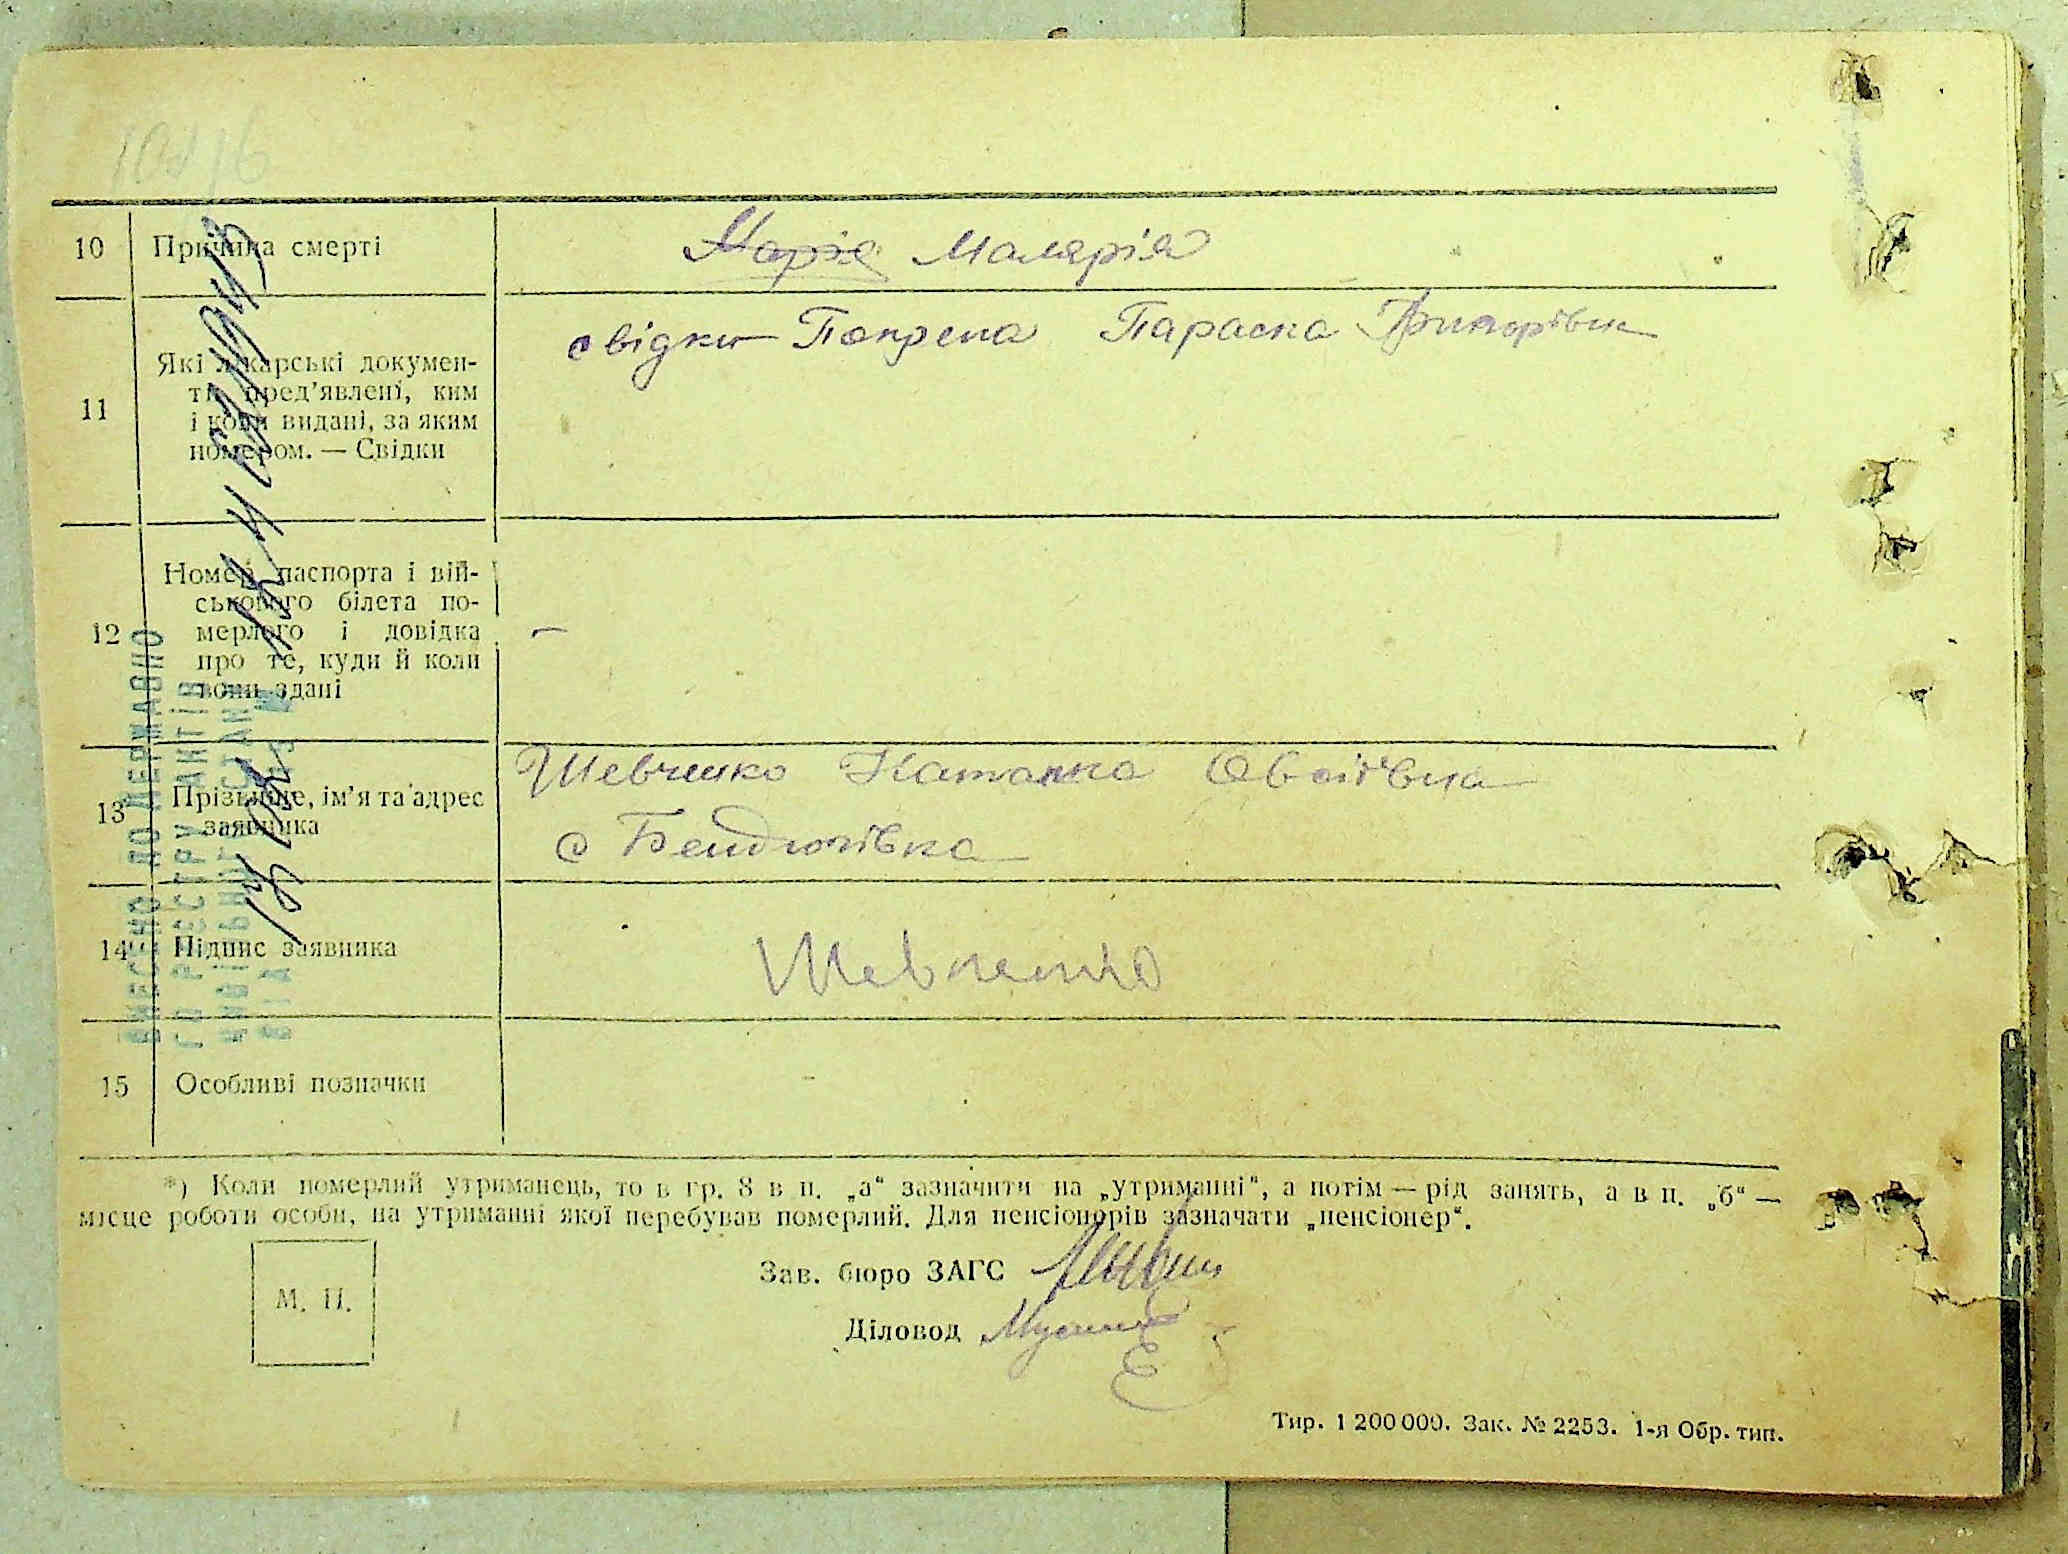 10
Причина смерті
Марія Малярія
11
Які лікарські докумен-
ти пред’явлені, ким
і коли видані, за яким
номером. — Свідки
свідки Параска Григорівна
12
Номер паспорта і вій-
ськового білета по-
мерлого і довідка
про те, куди й коли
вони здані
–
13
Прізвище, ім’я та адрес
заявника
Шевченко Наталка
с Бендюгівка
14
Підпис заявника
Шевченко
15
Особливі позначки
*) Коли померлий утриманець, то в гр. 8 в п. „а“ зазначити на „утриманні“, а потім — рід занять, а в п. „б“ —
місце роботи особи, на утриманні якої перебував померлий. Для пенсіонерів зазначати „пенсіонер“.
М. П.
Зав. бюро ЗАГС
Діловод
Тир. 1 200 000. Зак. № 2253. 1-я Обр. тип.
ВНЕСЕНО ДО ДЕРЖАВНО
ГО РЕЄСТРУ АКТІВ